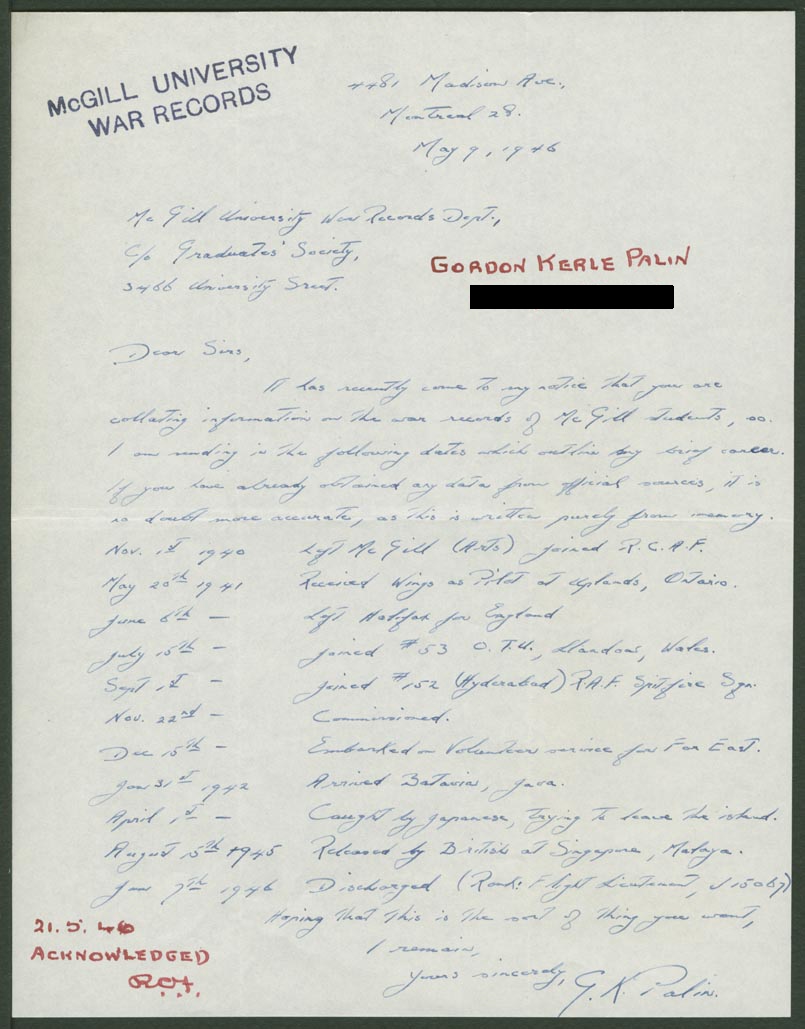 McGILL UNIVERSITY
WAR RECORDS
4481 Madison Ave.,
Montreal 28.
May 9, 1946
Mc Gill University War Records Dept.,
C/o Graduates' Society,
3466 University Sreet.
GORDON KERLE PALIN
Dear Sirs,
It has recently come to my notice that you are
collating information on the war records of Mc Gill students, so
I am sending in the following dates which outline my brief career.
If you have already obtained any data from official sources, it is
no doubt more accurate, as this is written purely from memory.
Nov. 1st 1940 Left Mc Gill (Arts) joined R.C.A.F.
May 20th 1941 Received Wings as Pilot at Uplands, Ontario.
June 6th — Left Halifax for England
July 15th — joined #53 O.T.U., Llandow, Wales.
Sept 1st — joined #152 (Hyderabad) R.A.F. Spitfire Sqn.
Nov. 22nd — Commissioned.
Dec 15th — Embarked on Volunteer service for Far East.
Jan 31st 1942 Arrived Batavia, Java.
April 1st — Caught by Japanese, trying to leave the island.
August 15th 1945 Released by British at Singapore, Malaya.
Jan 7th 1946 Discharged (Rank: Flight Lieutenant, J15067)
Hoping that this is the sort of thing you want,
I remain,
Yours sincerely,
G. K. Palin.
21.5.46
ACKNOWLEDGED